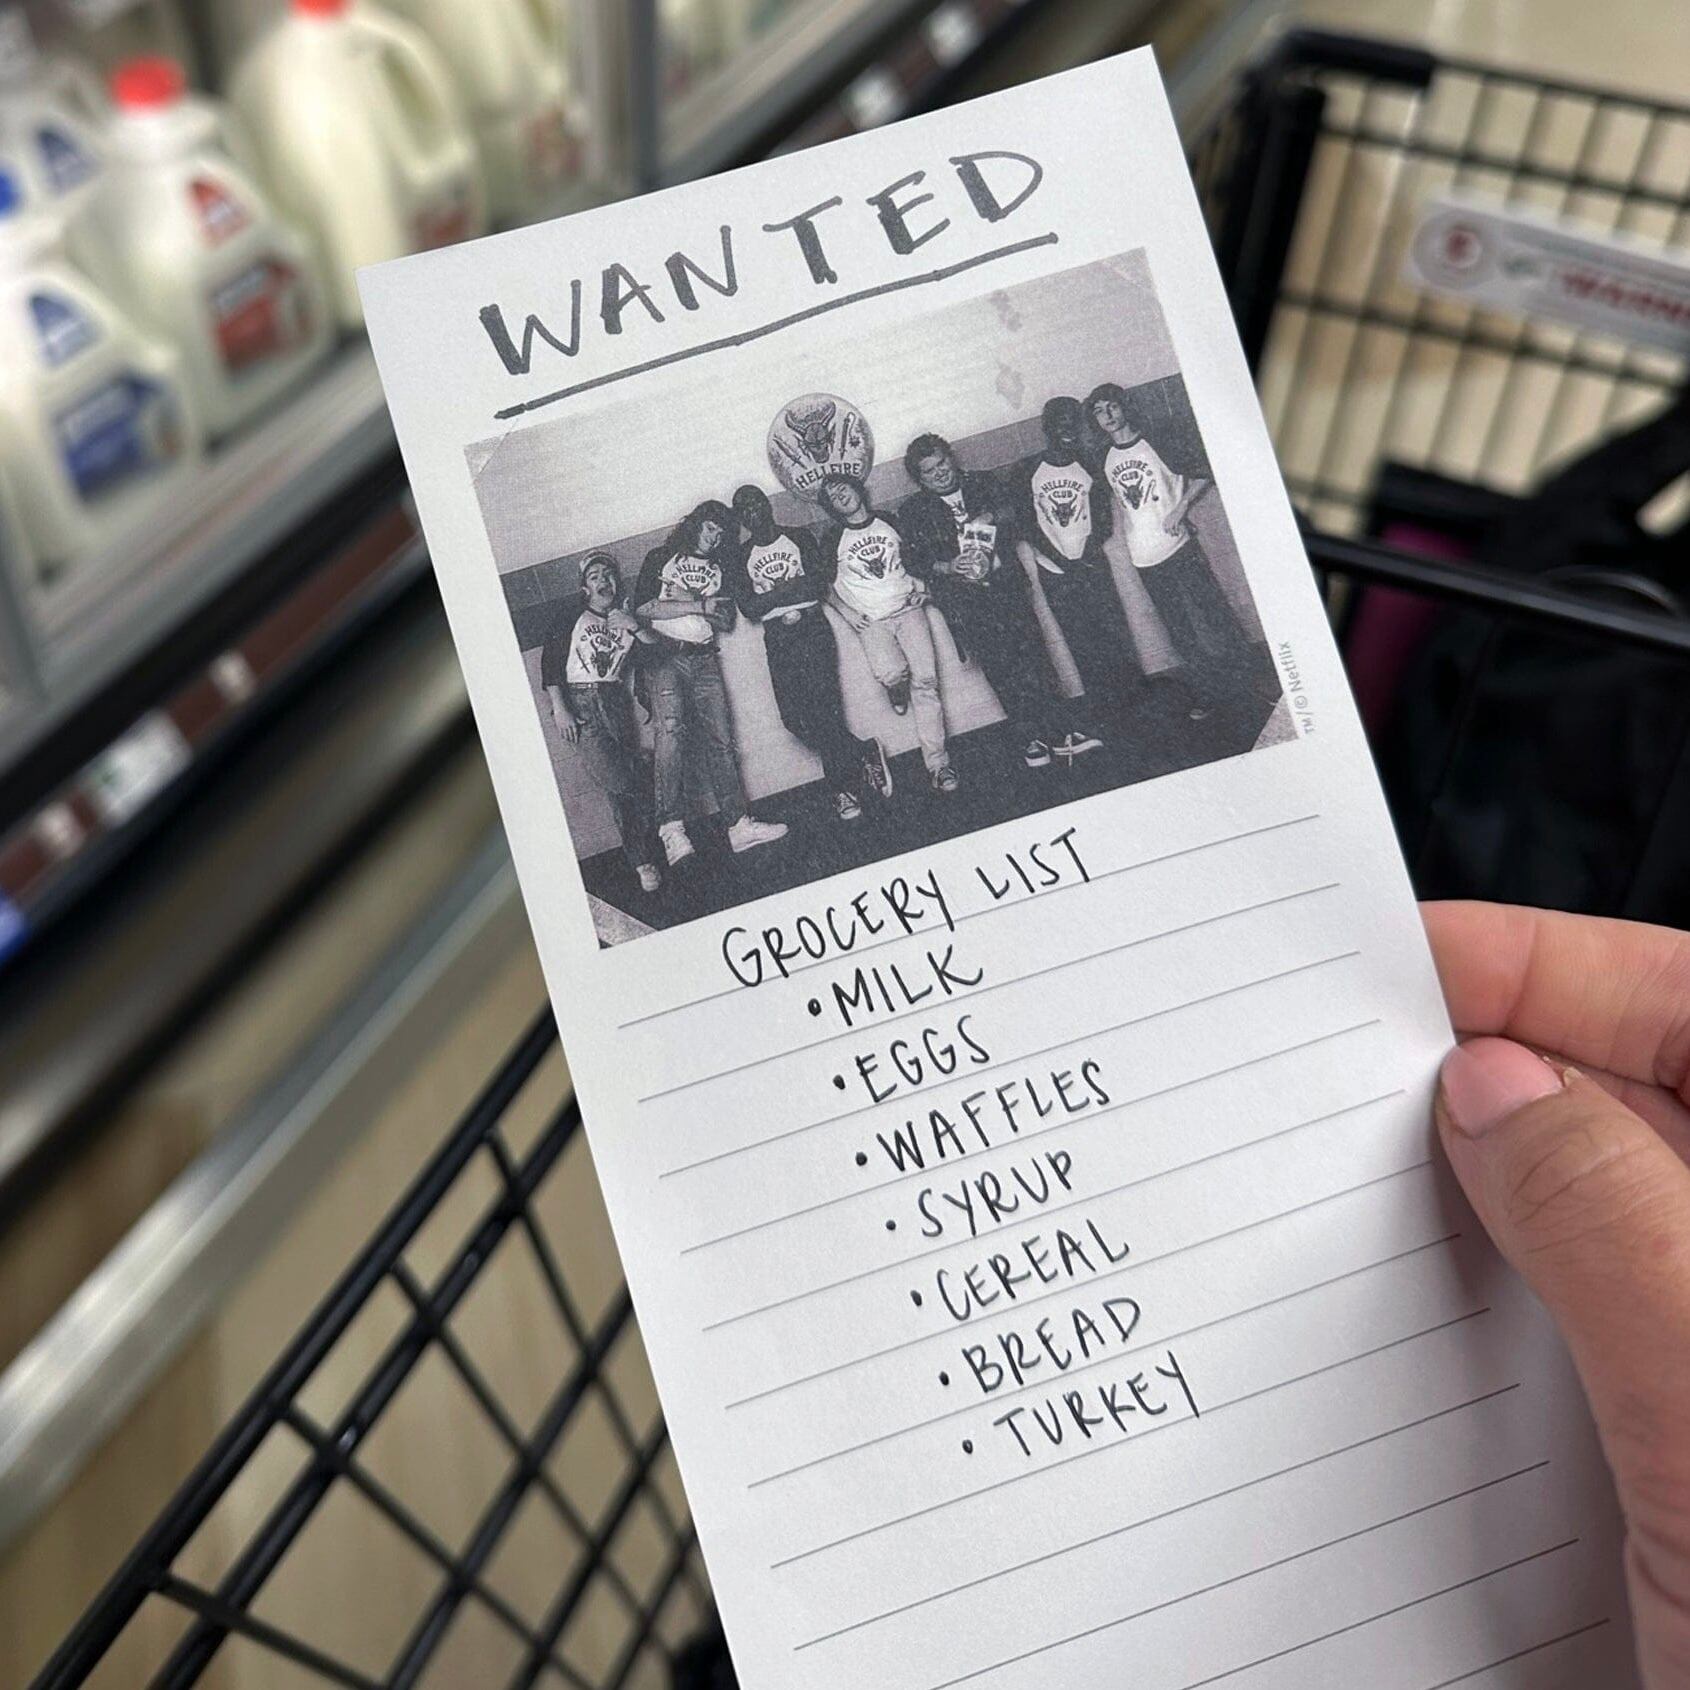 WANTED
HELLFIRE
HELLFIRE
CLUB
HELLFIRE
CLUB
HELLFIRE
CLUB
HELLFIRE
CLUB
HELLFIRE
CLUB
HELLFIRE
CLUB
TM/© Netflix
GROCERY LIST
•MILK
•EGGS
•WAFFLES
•SYRUP
•CEREAL
•BREAD
•TURKEY